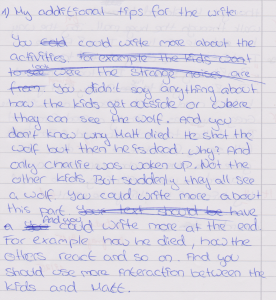 1) My additional tips for the write
You could could write more about the
activities. For example the kids went
to see were the strange noises are
from You didn't say anything about
how the kids get outside or where
they can see the wolf. And you
don't know why Matt died. He shot the
wolf but then he is dead why? And
only charlie was woken up. Not the
other kids. But suddenly they all see
a wolf. You could write more about
this part. Your text should be have
a And you could write more at the end.
For example how he died, how the
others react and so on. And you
should use more interaction between the
kids and Matt.